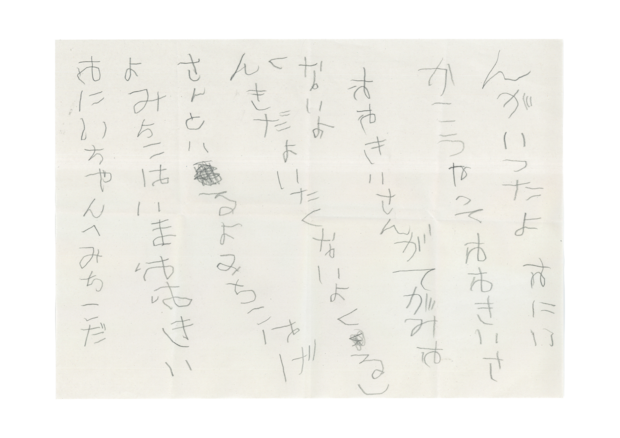 おにいちゃんへみちこだ
よ みちこはいまおおきい
さんといるよみちこはげ
んきだよいたくないよくるし
くないよ
おおきいさんがてがみお
かこうなっておおきいさ
んがいったよ おにい